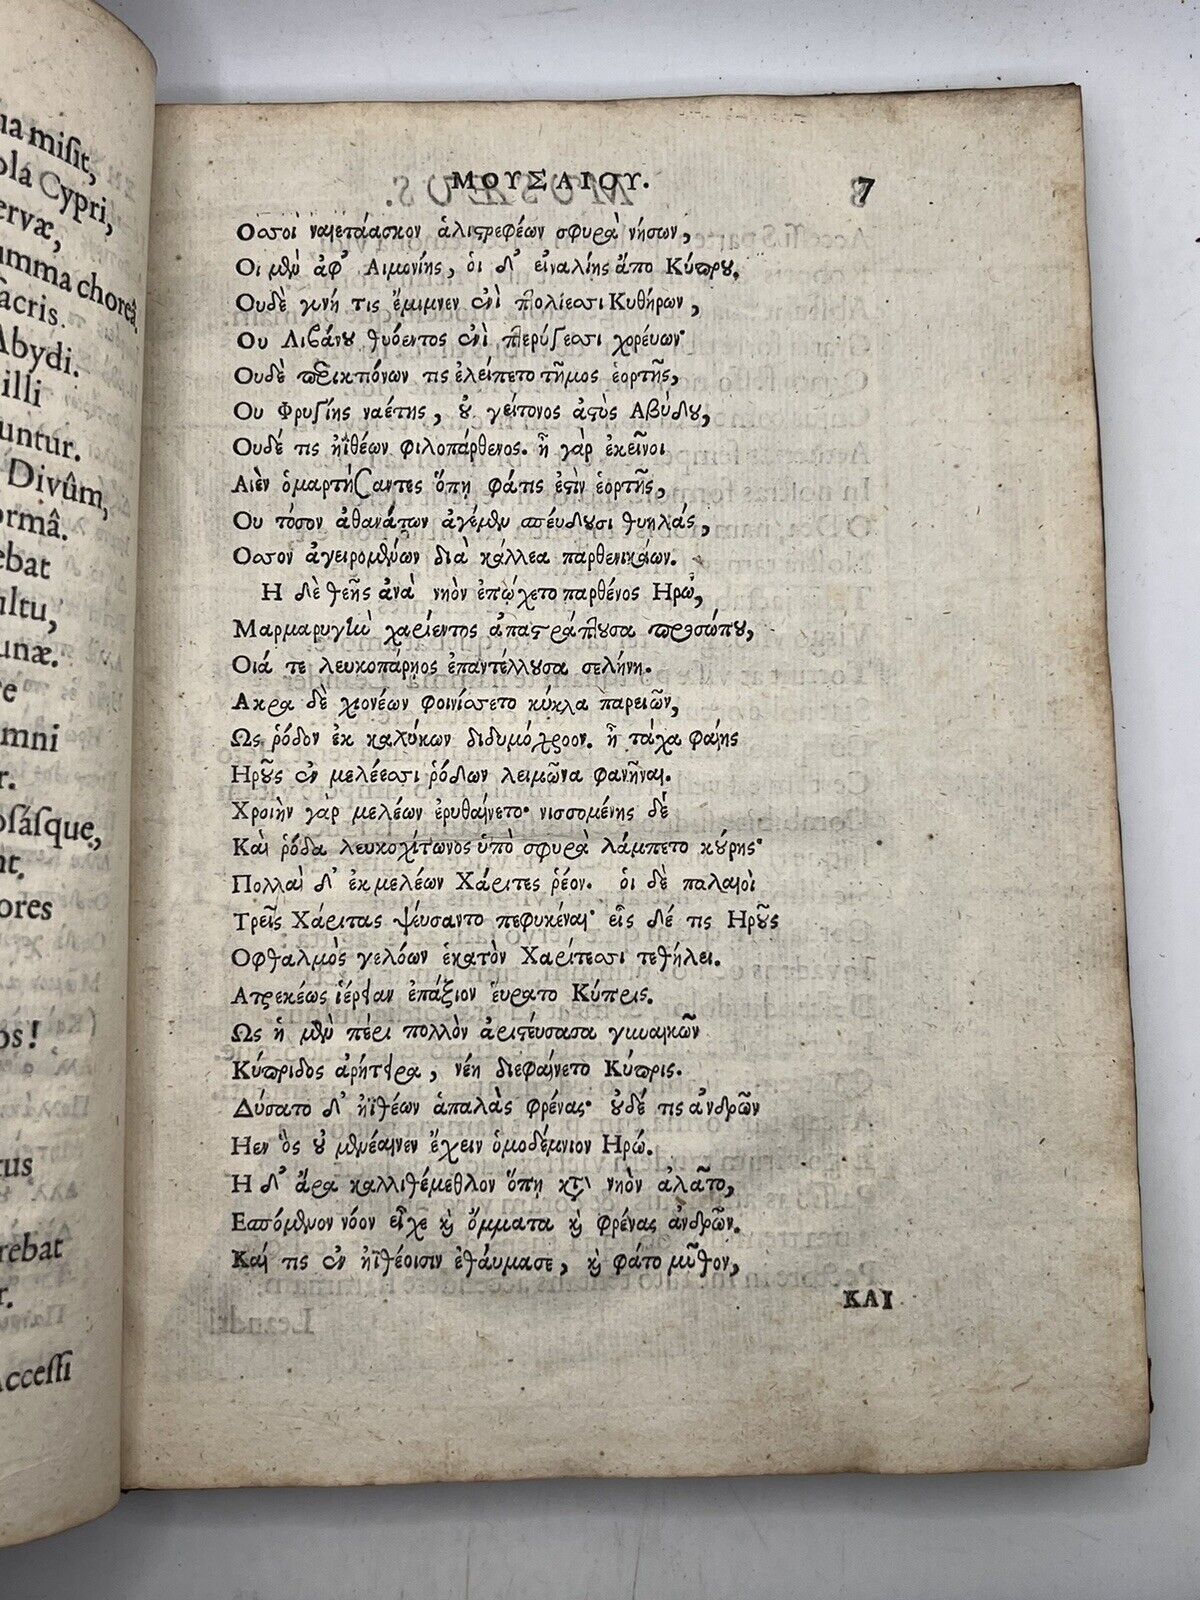 ua misit,
ola Cypri,
ervæ,
umma choreâ
sacris.
Abydi.
illi
untur.
Divûm,
ormâ.
ebat
ultu,
unæ.
re
mni
r.
osásque,
nt.
ores
os!
tus
rebat
r.
Accessi
ΜΟΥΣΑΙΟΥ. 7
Οσσοι ναιετάασκον ἁλιστρεφέων σφυρὰ νήσων,
Οι μὲν ἀφ' Αιμονίης, οἱ δ' εἰναλίης ἄπο Κύπρου.
Ουδὲ γυνή τις ἔμιμνεν ἐνὶ πτολίεσσι Κυθήρων,
Ου Λιβάνου θυόεντος ἐνὶ πτερύγεσσι χορεύων·
Ουδὲ περικτιόνων τις ἐλείπετο τῆμος ἑορτῆς,
Ου Φρυγίης ναέτης, οὐ γείτονος ἀστὸς Αβύδου,
Ουδέ τις ἠϊθέων φιλοπάρθενος. ἦ γὰρ ἐκεῖνοι
Αιὲν ὁμαρτήσαντες ὅπη φάτις ἐστὶν ἑορτῆς,
Ου τόσον ἀθανάτων ἀγέμεν σπεύδουσι θυηλάς,
Οσσον ἀγειρομένων διὰ κάλλεα παρθενικάων.
Η δὲ θεῆς ἀνὰ νηὸν ἐπῴχετο παρθένος Ηρὼ,
Μαρμαρυγὴν χαρίεντος ἀπαστράπτουσα προσώπου,
Οιά τε λευκοπάρῃος ἐπαντέλλουσα σελήνη.
Ακρα δὲ χιονέων φοινίσσετο κύκλα παρειῶν,
Ως ῥόδον ἐκ καλύκων διδυμόχροον. ἦ τάχα φαίης
Ηροῦς ἐν μελέεσσι ῥόδων λειμῶνα φανῆναι.
Χροιὴν γὰρ μελέων ἐρυθαίνετο· νισσομένης δέ
Καὶ ῥόδα λευκοχίτωνος ὑπὸ σφυρὰ λάμπετο κούρης·
Πολλαὶ δ' ἐκ μελέων Χάριτες ῥέον. οἱ δὲ παλαιοὶ
Τρεῖς Χάριτας ψεύσαντο πεφυκέναι· εἷς δέ τις Ηροῦς
Οφθαλμὸς γελόων ἑκατὸν Χαρίτεσσι τεθήλει.
Ατρεκέως ἱέρειαν ἐπάξιον εὕρατο Κύπρις.
Ως ἡ μὲν πέρι πολλὸν ἀριστεύσασα γυναικῶν
Κύπριδος ἀρήτειρα, νέη διεφαίνετο Κύπρις.
Δύσατο δ' ἠϊθέων ἁπαλὰς φρένας· οὐδέ τις ἀνδρῶν
Ηεν ὃς οὐ μενέαινεν ἔχειν ὁμοδέμνιον Ηρώ.
Η δ' ἄρα καλλιθέμεθλον ὅπη κατὰ νηὸν ἀλᾶτο,
Εσπόμενον νόον εἶχε καὶ ὄμματα καὶ φρένας ἀνδρῶν.
Καί τις ἐν ἠϊθέοισιν ἐθαύμασε, καὶ φάτο μῦθον,
ΚΑΙ